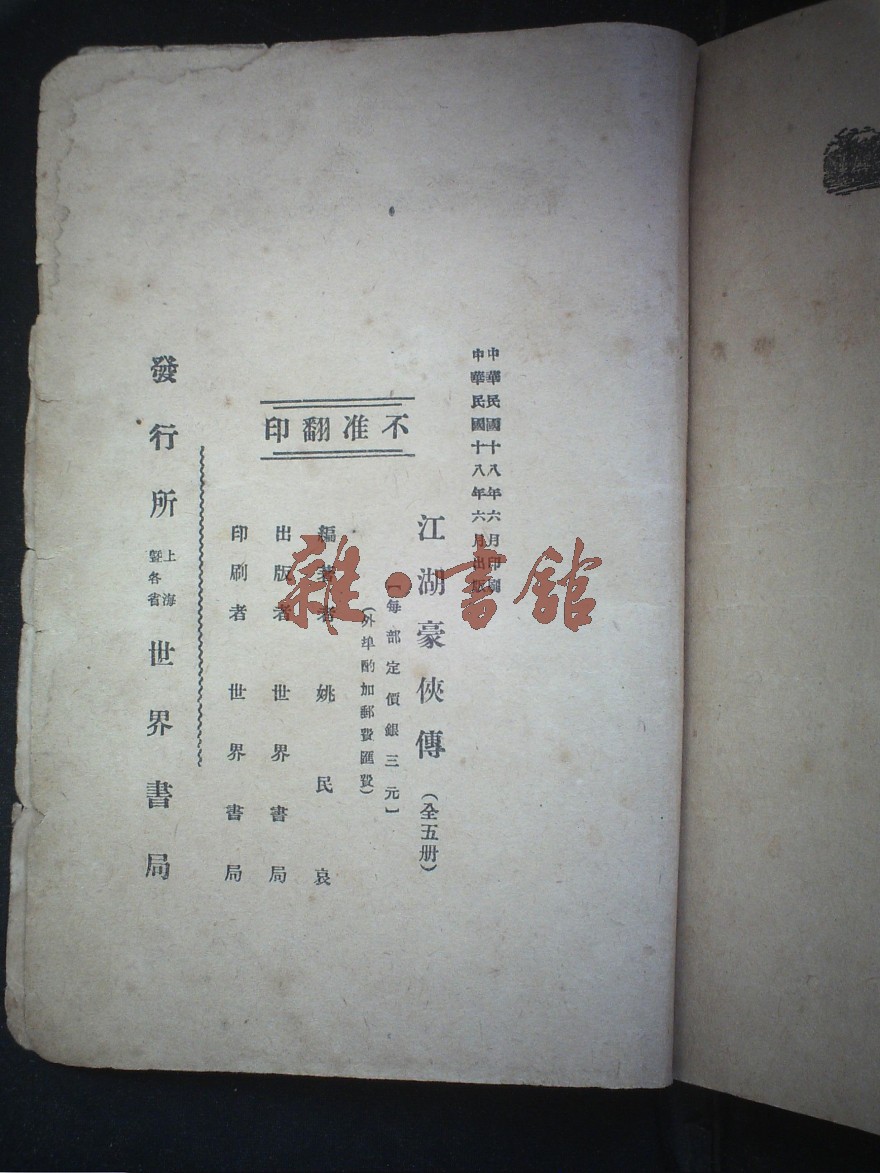 中華民國十八年六月印刷
中華民國十八年六月出版
江湖豪俠傳（全五册）
［每部定價銀三元］
（外埠酌加郵費匯費）
不准翻印
編著者 姚民哀
出版者 世界書局
印刷者 世界書局
發行所 上海暨各省 世界書局
雜·書館